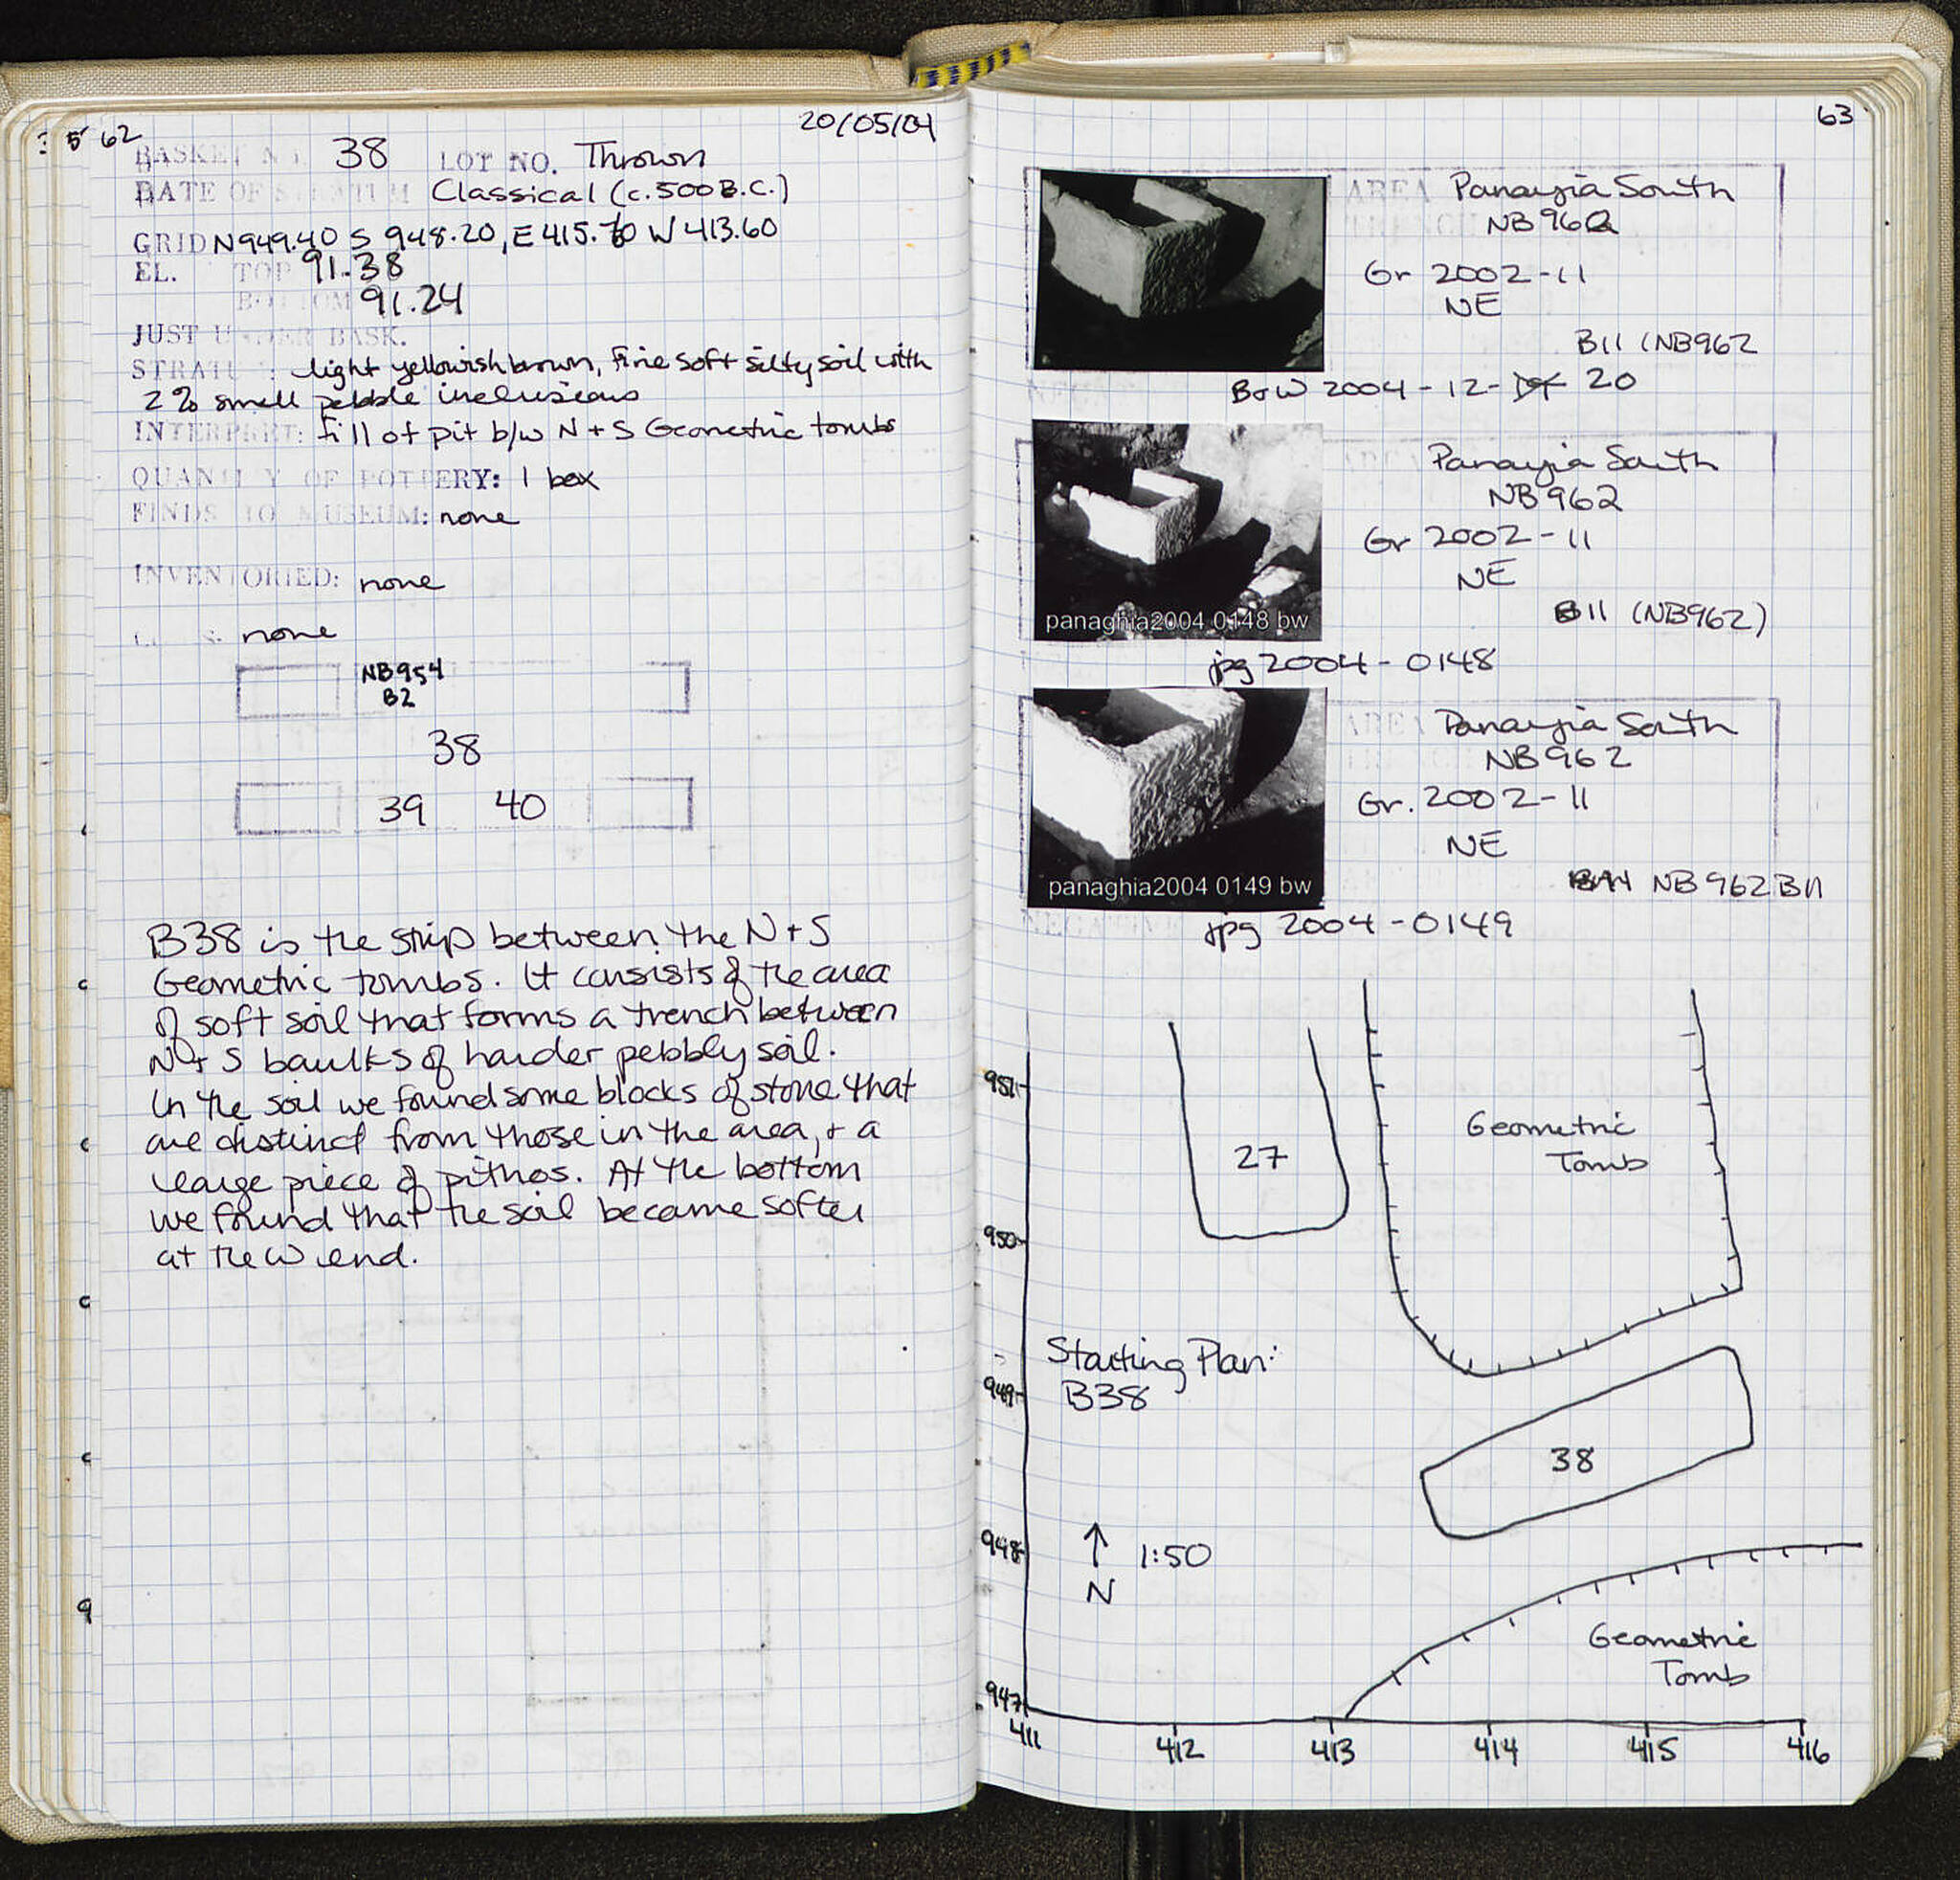 62
20/05/04
BASKET NO. 38 LOT NO. Thrown
DATE OF STRATUM Classical (c.500 B.C.)
GRID N949.40 S 948.20, E415.70 W413.60
EL. TOP 91.38
BOTTOM 91.24
JUST UNDER BASK.
STRATUM: light yellowish brown, fine soft silty soil with
2% small pebble inclusions
INTERPRET: fill of pit b/w N + S Geometric tombs
QUANTITY OF POTTERY: 1 box
FINDS TO MUSEUM: none
INVENTORIED: none
none
NB954
B2
38
39 40
B38 is the strip between the N + S
Geometric tombs. It consists of the area
of soft soil that forms a trench between
N + S baulks of harder pebbly soil.
In the soil we found some blocks of stone that
are distinct from those in the area, + a
large piece of pithos. At the bottom
we found that the soil became softer
at the W end.
63
AREA Panayia South
TRENCH NB962
Gr 2002-11
NE
B11 (NB962
B+W 2004-12- 20
AREA Panayia South
NB962
Gr 2002-11
NE
B11 (NB962)
panaghia2004 0148 bw
jpg 2004-0148
AREA Panayia South
TRENCH NB962
Gr. 2002-11
NE
NB962 B11
panaghia2004 0149 bw
NEGATIVE jpg 2004-0149
951
950
949
948
947
27
Geometric
Tomb
Starting Plan:
B38
38
1:50
N
Geometric
Tomb
411
412
413
414
415
416